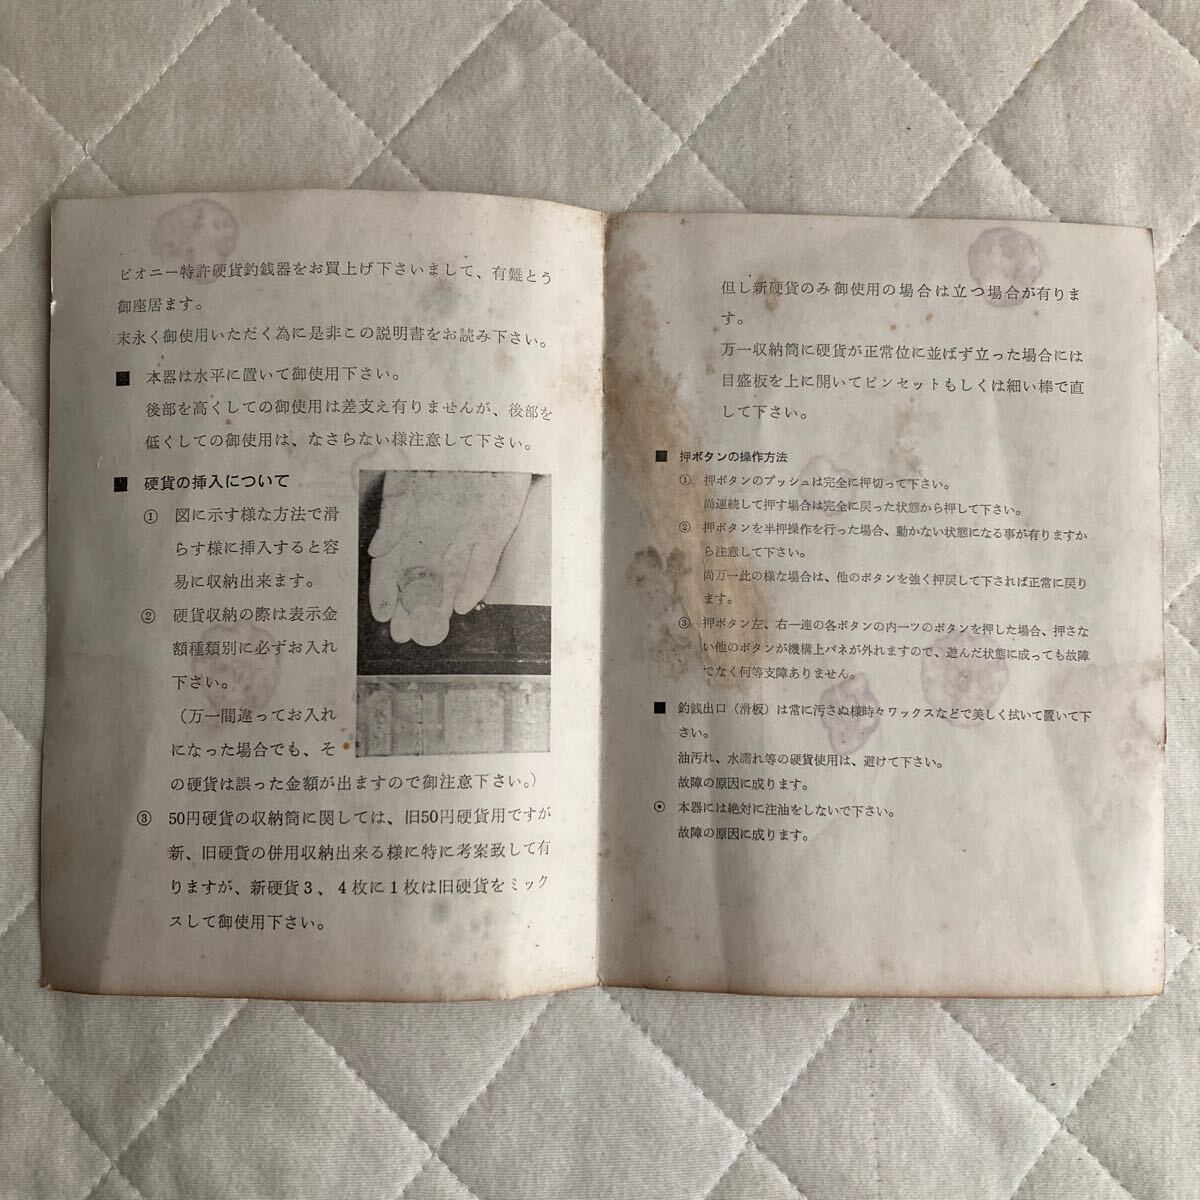 ピオニー特許硬貨釣銭器をお買上げ下さいまして、有難とう
御座居ます。
末永く御使用いただく為に是非この説明書をお読み下さい。
■ 本器は水平に置いて御使用下さい。
後部を高くしての御使用は差支え有りませんが、後部を
低くしての御使用は、なさらない様注意して下さい。
■ 硬貨の挿入について
① 図に示す様な方法で滑
らす様に挿入すると容
易に収納出来ます。
② 硬貨収納の際は表示金
額種類別に必ずお入れ
下さい。
（万一間違ってお入れ
になった場合でも、そ
の硬貨は誤った金額が出ますので御注意下さい。）
③ 50円硬貨の収納筒に関しては、旧50円硬貨用ですが
新、旧硬貨の併用収納出来る様に特に考案致して有
りますが、新硬貨３、４枚に１枚は旧硬貨をミック
スして御使用下さい。
但し新硬貨のみ御使用の場合は立つ場合が有りま
す。
万一収納筒に硬貨が正常位に並ばず立った場合には
目盛板を上に開いてピンセットもしくは細い棒で直
して下さい。
■ 押ボタンの操作方法
① 押ボタンのプッシュは完全に押切って下さい。
尚連続して押す場合は完全に戻った状態から押して下さい。
② 押ボタンを半押操作を行った場合、動かない状態になる事が有りますか
ら注意して下さい。
尚万一此の様な場合は、他のボタンを強く押戻して下されば正常に戻り
ます。
③ 押ボタン左、右一連の各ボタンの内一ツのボタンを押した場合、押さな
い他のボタンが機構上バネが外れますので、遊んだ状態に成っても故障
でなく何等支障ありません。
■ 釣銭出口（滑板）は常に汚さぬ様時々ワックスなどで美しく拭いて置いて下
さい。
油汚れ、水濡れ等の硬貨使用は、避けて下さい。
故障の原因に成ります。
⦿ 本器には絶対に注油をしないで下さい。
故障の原因に成ります。